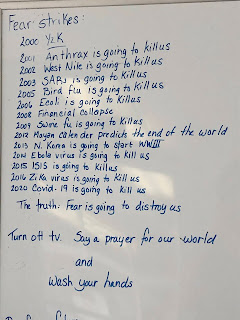 Fear strikes:
2000 Y2K
2001 Anthrax is going to kill us
2002 West Nile is going to kill us
2003 SARS is going to kill us
2005 Bird flu is going to kill us
2006 Ecoli is going to kill us
2008 Financial collapse
2009 Swine flu is going to kill us
2012 Mayan calender predicts the end of the world
2013 N. Korea is going to start WWIII
2014 Ebola virus is going to kill us
2015 ISIS is going to kill us
2016 Zika virus is going to kill us
2020 Covid-19 is going to kill us
The truth: Fear is going to distroy us
Turn off tv. Say a prayer for our world
and
Wash your hands